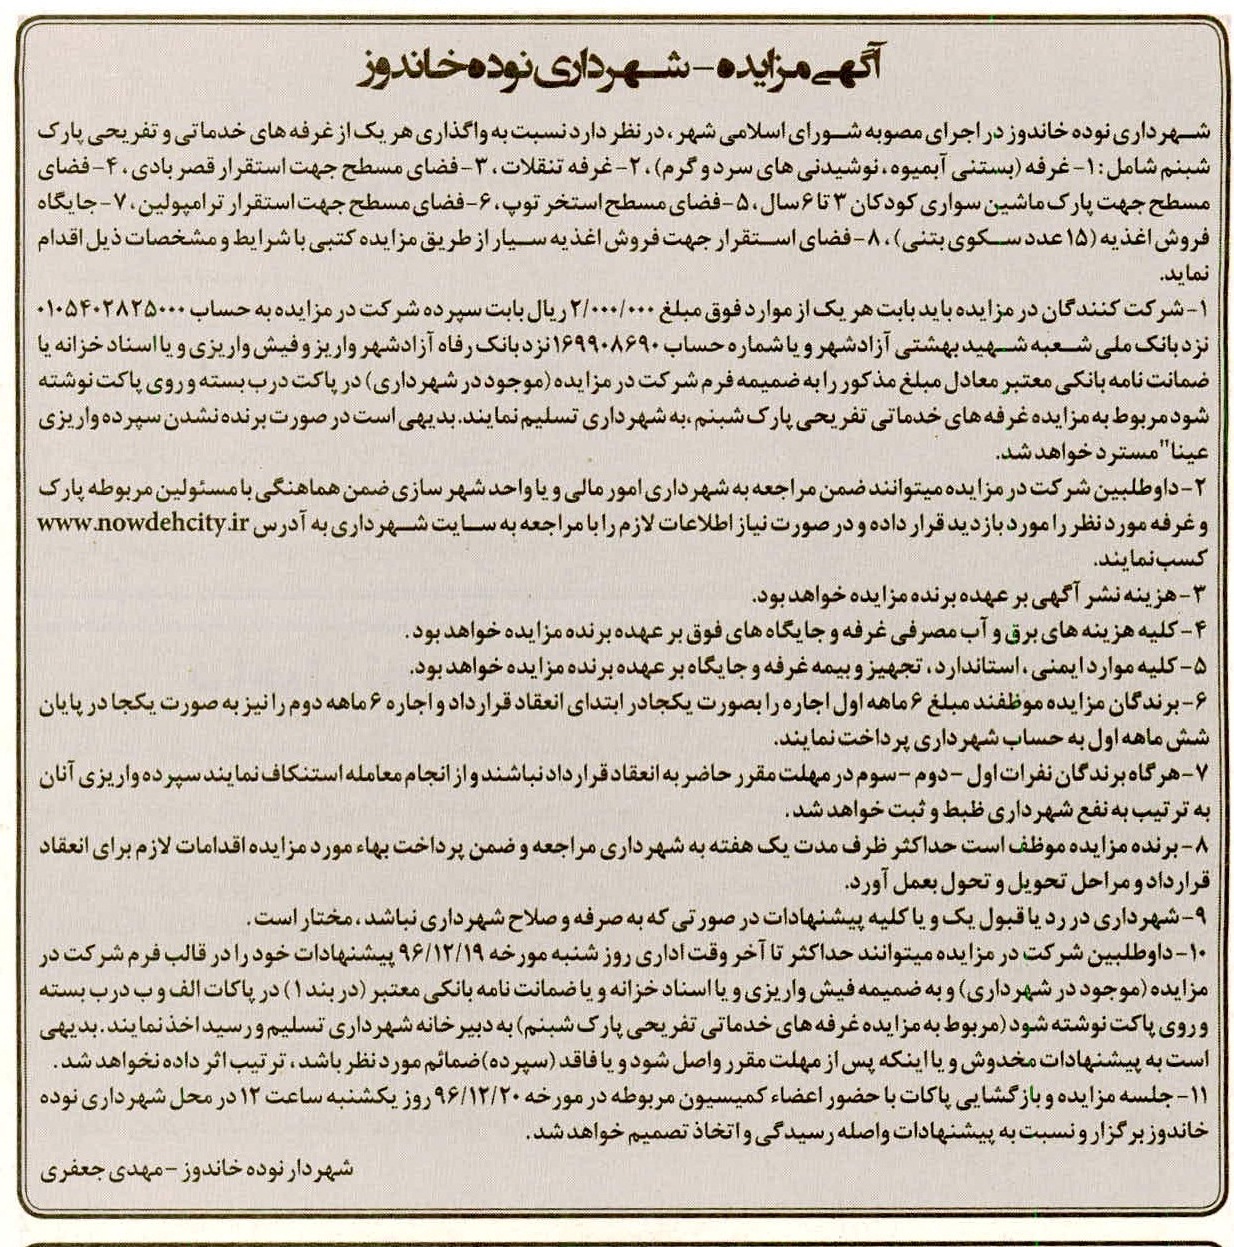 آگهی مزایده - شهرداری نوده خاندوز
شهرداری نوده خاندوز در اجرای مصوبه شورای اسلامی شهر، در نظر دارد نسبت به واگذاری هر یک از غرفه های خدماتی و تفریحی پارک
شبنم شامل: ۱- غرفه (بستنی آبمیوه، نوشیدنی های سرد و گرم)، ۲- غرفه تنقلات، ۳- فضای مسطح جهت استقرار قصر بادی، ۴- فضای
مسطح جهت پارک ماشین سواری کودکان ۳ تا ۶ سال، ۵- فضای مسطح استخر توپ، ۶- فضای مسطح جهت استقرار ترامپولین، ۷- جایگاه
فروش اغذیه (۱۵ عدد سکوی بتنی)، ۸- فضای استقرار جهت فروش اغذیه سیار از طریق مزایده کتبی با شرایط و مشخصات ذیل اقدام
نماید.
۱- شرکت کنندگان در مزایده باید بابت هر یک از موارد فوق مبلغ ۲/۰۰۰/۰۰۰ ریال بابت سپرده شرکت در مزایده به حساب ۰۱۰۵۴۰۲۸۲۵۰۰۰
نزد بانک ملی شعبه شهید بهشتی آزادشهر و یا شماره حساب ۱۶۹۹۰۸۶۹۰ نزد بانک رفاه آزادشهر واریز و فیش واریزی و یا اسناد خزانه یا
ضمانت نامه بانکی معتبر معادل مبلغ مذکور را به ضمیمه فرم شرکت در مزایده (موجود در شهرداری) در پاکت درب بسته و روی پاکت نوشته
شود مربوط به مزایده غرفه های خدماتی تفریحی پارک شبنم، به شهرداری تسلیم نمایند. بدیهی است در صورت برنده نشدن سپرده واریزی
عینا" مسترد خواهد شد.
۲- داوطلبین شرکت در مزایده میتوانند ضمن مراجعه به شهرداری امور مالی و یا واحد شهر سازی ضمن هماهنگی با مسئولین مربوطه پارک
و غرفه مورد نظر را مورد بازدید قرار داده و در صورت نیاز اطلاعات لازم را با مراجعه به سایت شهرداری به آدرس www.nowdehcity.ir
کسب نمایند.
۳- هزینه نشر آگهی بر عهده برنده مزایده خواهد بود.
۴- کلیه هزینه های برق و آب مصرفی غرفه و جایگاه های فوق بر عهده برنده مزایده خواهد بود.
۵- کلیه موارد ایمنی، استاندارد، تجهیز و بیمه غرفه و جایگاه بر عهده برنده مزایده خواهد بود.
۶- برندگان مزایده موظفند مبلغ ۶ ماهه اول اجاره را بصورت یکجا در ابتدای انعقاد قرارداد و اجاره ۶ ماهه دوم را نیز به صورت یکجا در پایان
شش ماهه اول به حساب شهرداری پرداخت نمایند.
۷- هر گاه برندگان نفرات اول - دوم - سوم در مهلت مقرر حاضر به انعقاد قرارداد نباشند و از انجام معامله استنکاف نمایند سپرده واریزی آنان
به ترتیب به نفع شهرداری ظبط و ثبت خواهد شد.
۸- برنده مزایده موظف است حداکثر ظرف مدت یک هفته به شهرداری مراجعه و ضمن پرداخت بهاء مورد مزایده اقدامات لازم برای انعقاد
قرارداد و مراحل تحویل و تحول بعمل آورد.
۹- شهرداری در رد یا قبول یک و یا کلیه پیشنهادات در صورتی که به صرفه و صلاح شهرداری نباشد، مختار است.
۱۰- داوطلبین شرکت در مزایده میتوانند حداکثر تا آخر وقت اداری روز شنبه مورخه ۹۶/۱۲/۱۹ پیشنهادات خود را در قالب فرم شرکت در
مزایده (موجود در شهرداری) و به ضمیمه فیش واریزی و یا اسناد خزانه و یا ضمانت نامه بانکی معتبر (در بند ۱) در پاکات الف و ب درب بسته
و روی پاکت نوشته شود (مربوط به مزایده غرفه های خدماتی تفریحی پارک شبنم) به دبیرخانه شهرداری تسلیم و رسید اخذ نمایند. بدیهی
است به پیشنهادات مخدوش و یا اینکه پس از مهلت مقرر واصل شود و یا فاقد (سپرده) ضمائم مورد نظر باشد، ترتیب اثر داده نخواهد شد.
۱۱- جلسه مزایده و بازگشایی پاکات با حضور اعضاء کمیسیون مربوطه در مورخه ۹۶/۱۲/۲۰ روز یکشنبه ساعت ۱۲ در محل شهرداری نوده
خاندوز برگزار و نسبت به پیشنهادات واصله رسیدگی و اتخاذ تصمیم خواهد شد.
شهردار نوده خاندوز - مهدی جعفری